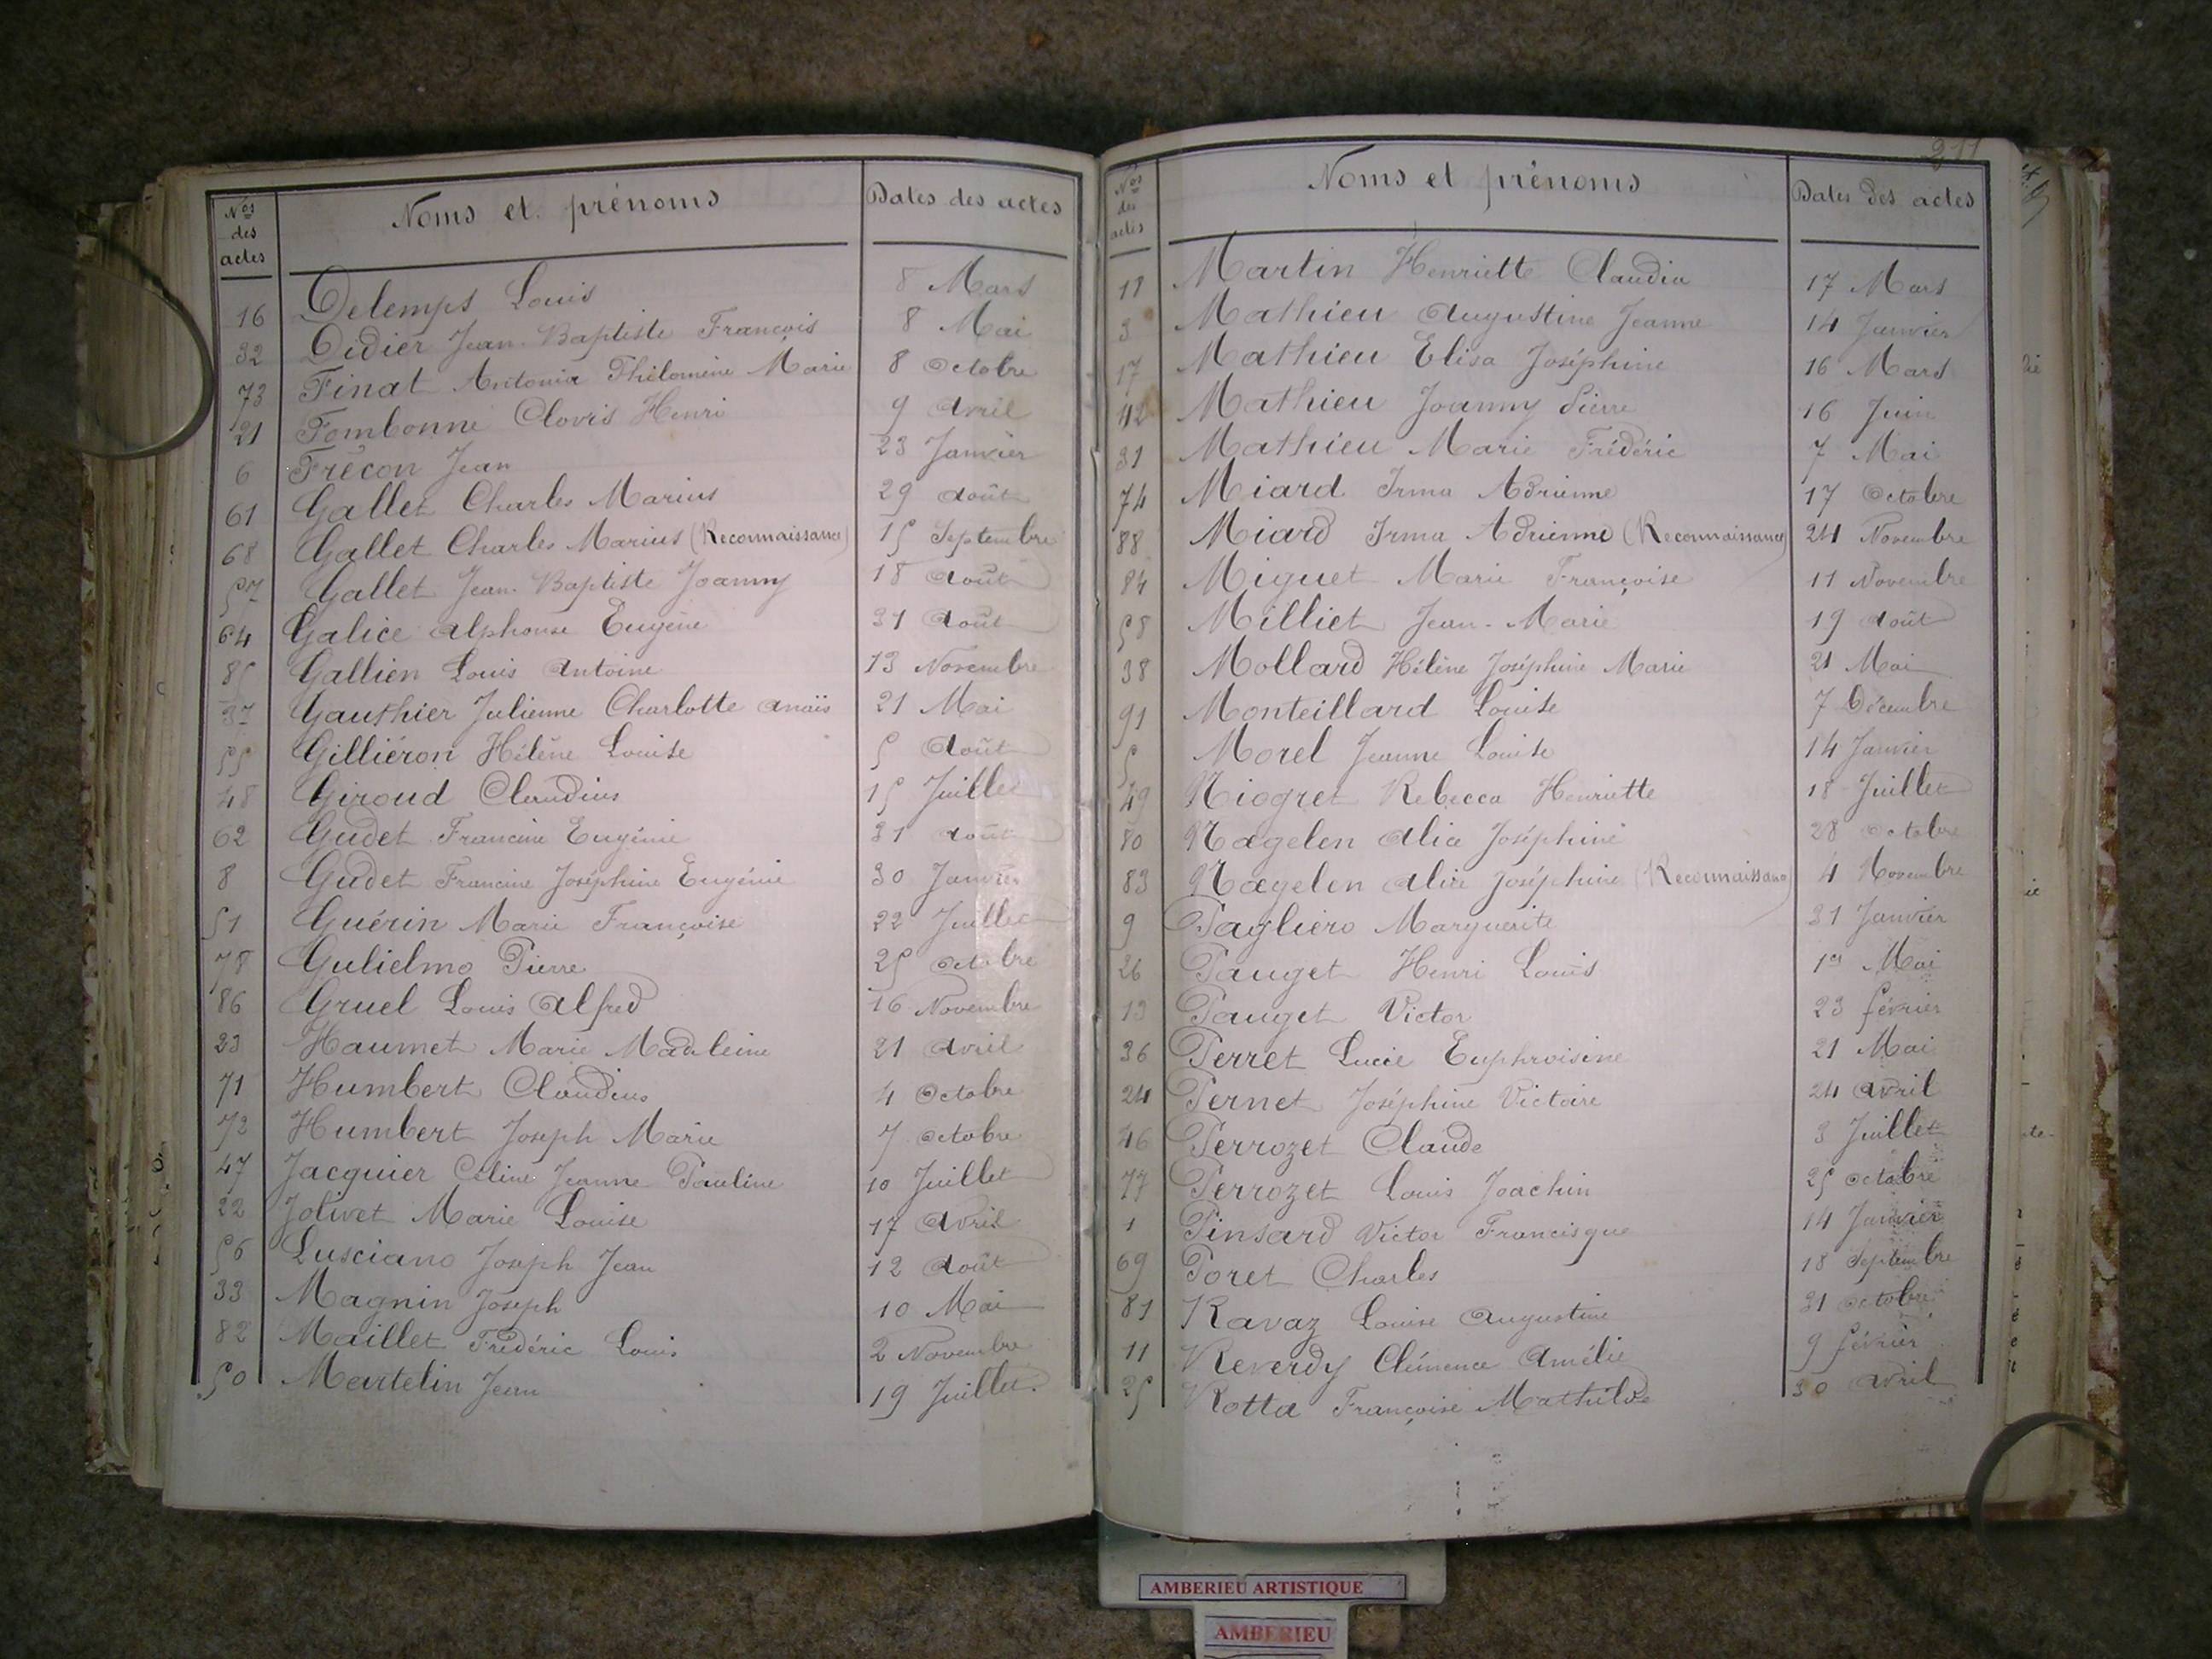 Nos des actes Noms et prénoms Dates des actes
16 Delemps Louis 8 Mars
32 Didier Jean-Baptiste François 8 Mai
73 Finat Antonia Philomène Marie 8 Octobre
21 Fombonne Clovis Henri 9 Avril
6 Frécon Jean 23 Janvier
61 Gallet Charles Marius 29 Août
68 Gallet Charles Marius (Reconnaissance) 15 Septembre
57 Gallet Jean-Baptiste Joanny 18 Août
64 Galice Alphonse Eugène 31 Août
85 Gallien Louis Antoine 13 Novembre
37 Gauthier Julienne Charlotte Anaïs 21 Mai
55 Gilliéron Hélène Louise 5 Août
48 Giroud Claudius 15 Juillet
62 Gudet Francine Eugénie 31 Août
8 Gudet Francine Joséphine Eugénie 30 Janvier
51 Guérin Marie Françoise 22 Juillet
78 Gulielmo Pierre 25 Octobre
86 Gruel Louis Alfred 16 Novembre
23 Haumet Marie Madeleine 21 Avril
71 Humbert Claudius 4 Octobre
72 Humbert Joseph Marie 7 Octobre
47 Jacquier Céline Jeanne Pauline 10 Juillet
22 Jolivet Marie Louise 17 Avril
56 Lusciano Joseph Jean 12 Août
33 Magnin Joseph 10 Mai
82 Maillet Frédéric Louis 2 Novembre
50 Martelin Jean 19 Juillet
211
Nos des actes Noms et prénoms Dates des actes
18 Martin Henriette Claudia 17 Mars
3 Mathieu Augustine Jeanne 14 Janvier
17 Mathieu Elisa Joséphine 16 Mars
42 Mathieu Joanny Pierre 16 Juin
31 Mathieu Marie Frédéric 7 Mai
74 Miard Irma Adrienne 17 Octobre
88 Miard Irma Adrienne (Reconnaissance) 24 Novembre
84 Miguet Marie Françoise 11 Novembre
58 Milliet Jean-Marie 19 Août
38 Mollard Hélène Joséphine Marie 21 Mai
91 Monteillard Louise 7 Décembre
5 Morel Jeanne Louise 14 Janvier
49 Niogret Rebecca Henriette 18 Juillet
80 Nægelen Alice Joséphine 28 Octobre
83 Nægelen Alice Joséphine (Reconnaissance) 4 Novembre
9 Pagliero Marguerite 31 Janvier
26 Pauget Henri Louis 1er Mai
13 Pauget Victor 23 février
36 Perret Lucie Euphroisine 21 Mai
24 Pernet Joséphine Victoire 24 Avril
46 Perrozet Claude 3 Juillet
77 Perrozet Louis Joachin 25 Octobre
1 Pinsard Victor Francisque 14 Janvier
69 Poret Charles 18 Septembre
81 Ravaz Louise Augustine 31 Octobre
11 Reverdy Clémence Amélie 9 février
25 Rotta Françoise Mathilde 30 Avril
AMBERIEU ARTISTIQUE
AMBERIEU